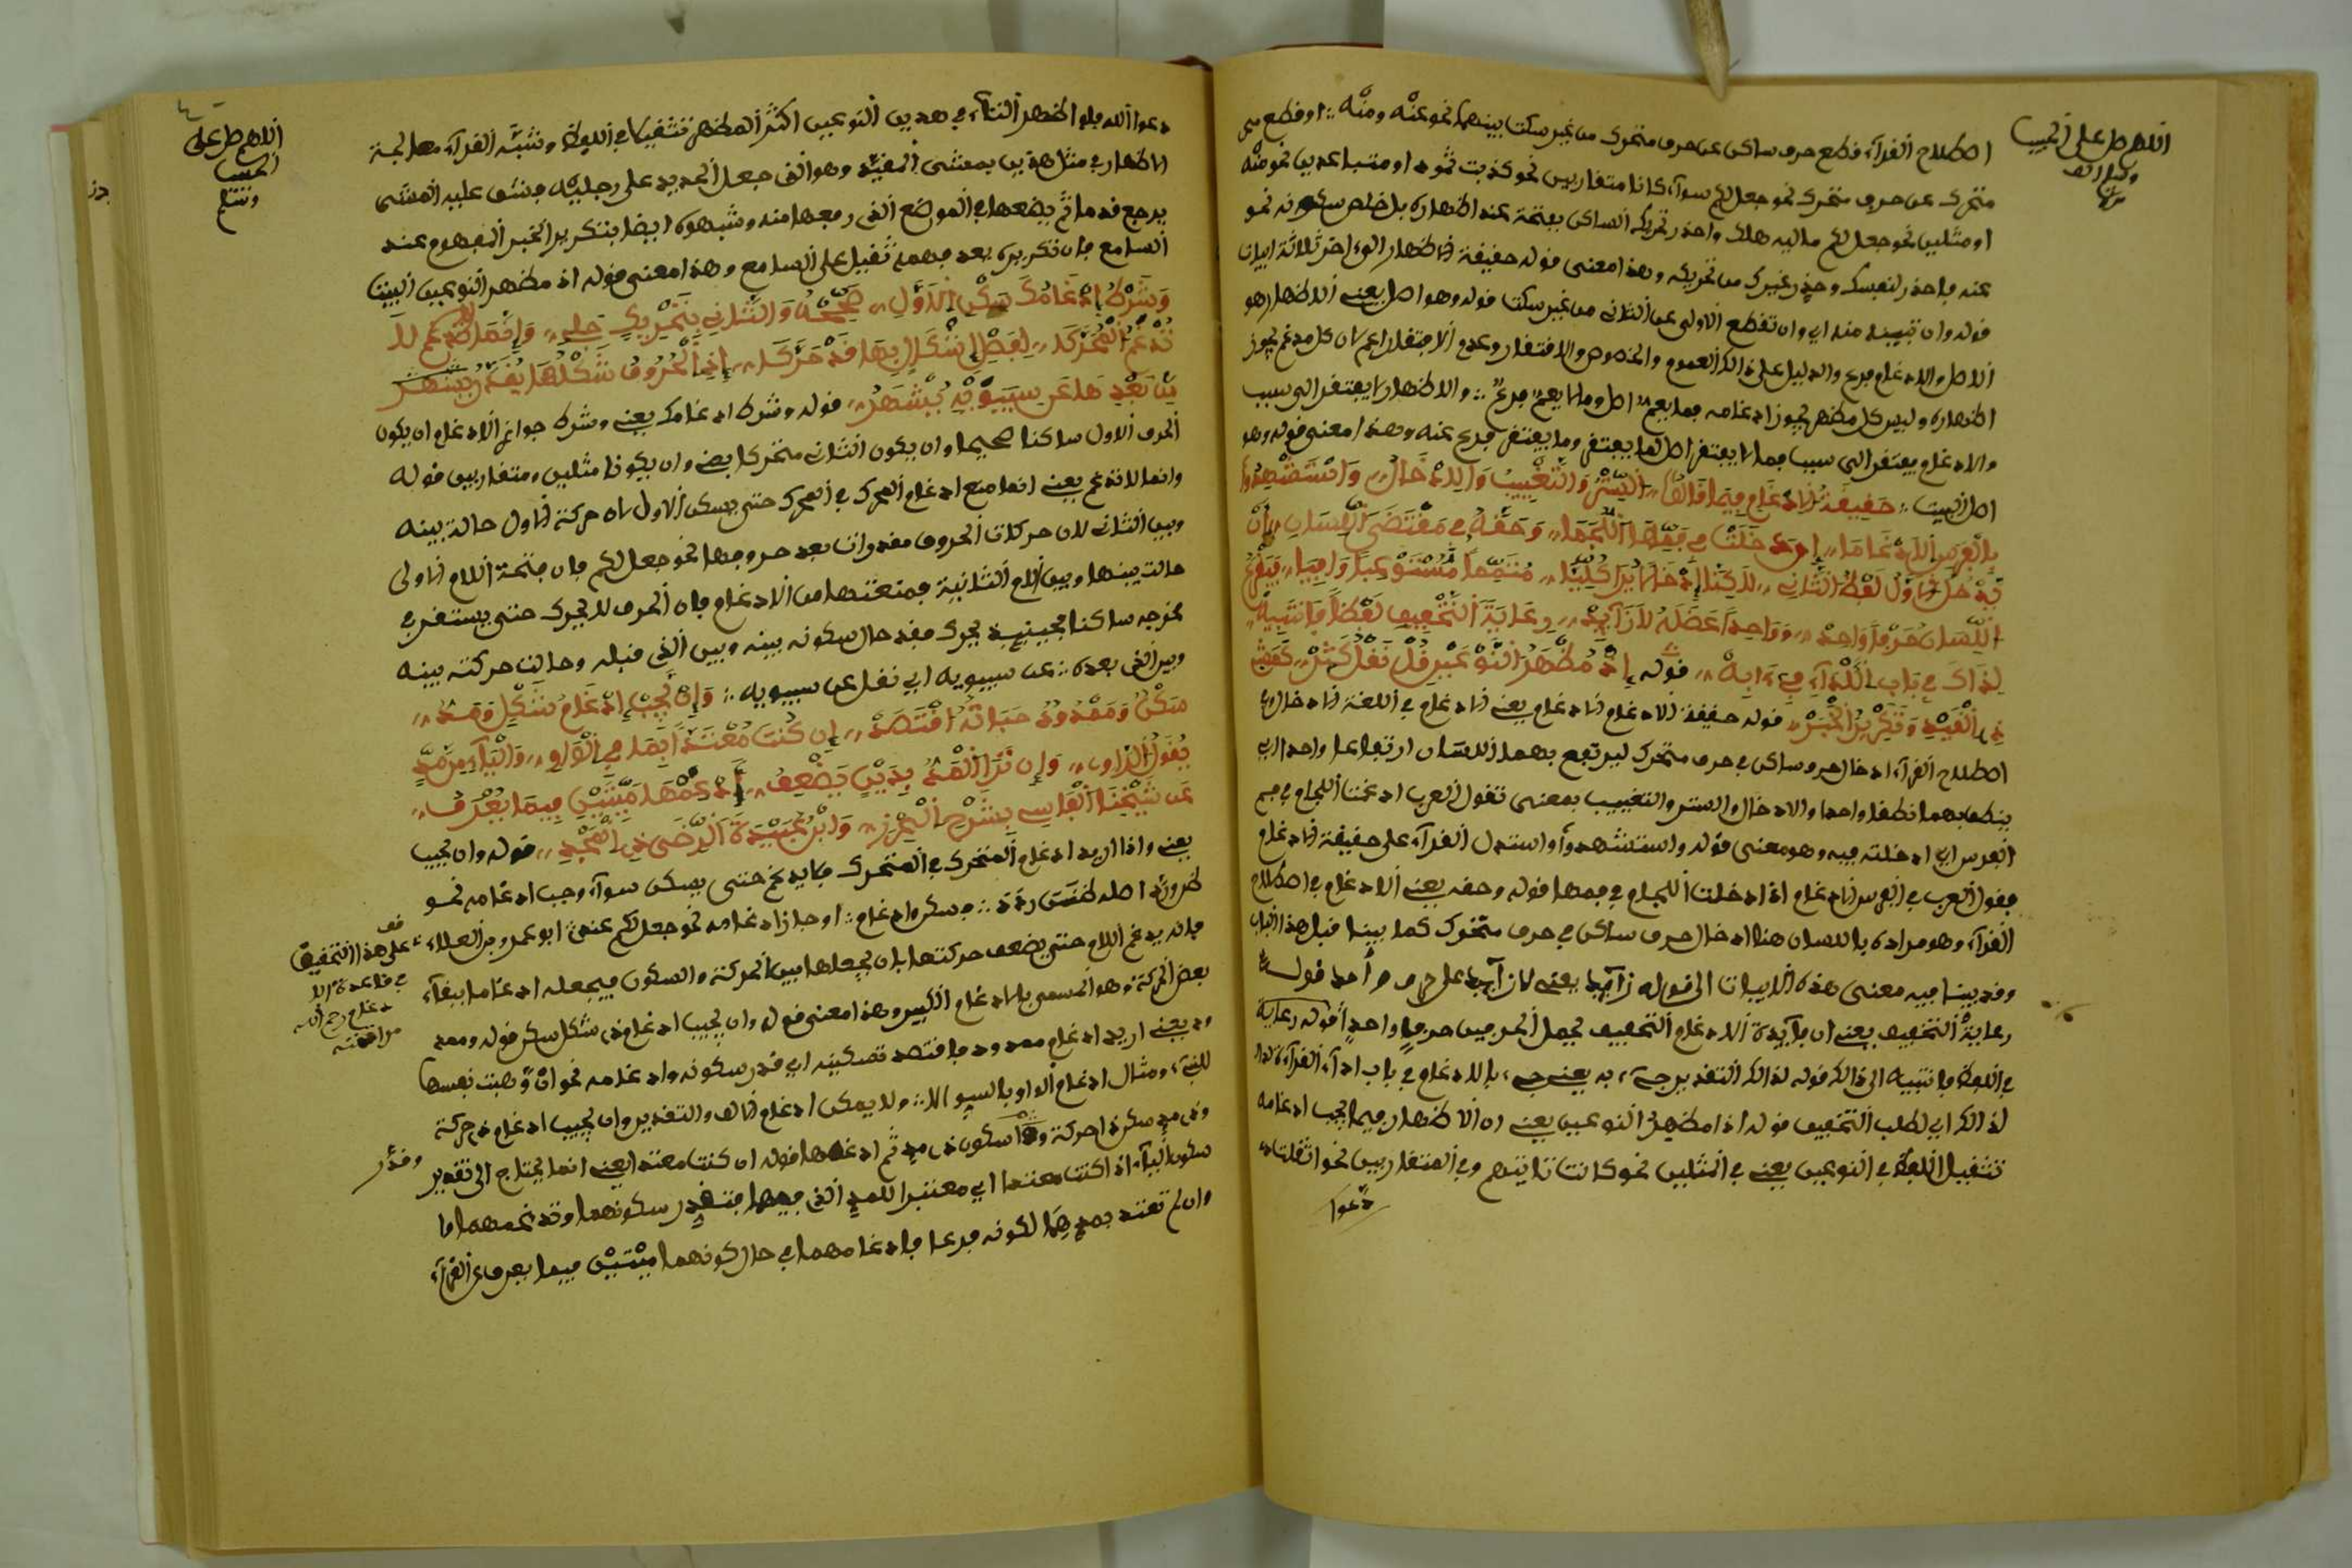 اللهم صل على الحبيب
اصطلاح القراء قطع حرف ساكن عن حرف متحرك من غير سكت بينهما نحو عنه ومنه :: او قطع
متحرك عن حرف متحرك نحو جعل لكم سواء كانا متقاربين نحو كذبت ثمود او متباعدين نحو منه
او مثلين نحو جعل لكم ماليه هلك واحذر تحريك الساكن بعتمة عند اظهاره بل خلص سكونه نحو
عنه واحذر لنفسك وحذر غيرك من تحريكه وهذا معنى قوله حقيقة الاظهار الى اخر ثلاثة ابيات
قوله وان تبينه منه اي وان تقطع الاولى عن الثاني من غير سكت قوله وهو اصل يعني الاظهار هو
الاصل والادغام فرع والدليل على ذالك العموم والخصوص والافتقار وعدم الافتقار اعم لان كل مدغم يجوز
اظهاره وليس كل مظهر يجوز ادغامه فما يعم اصل وما لا يعم فرع :: والاظهار لا يفتقر الى سبب
والادغام يفتقر الى سبب فما لا يفتقر اصل لما يفتقر وما يفتقر فرع عنه وهذا معنى قوله وهو
اصل البيت :: حقيقة الادغام فيما قالوا ,, الستر والتغييب والادخال ,, واستشهدوا
بالفرس الادغاما ,, اي دخلت في فمها اللجما ,, وحقه في مقتضى اللسان ,, ان
تدخل الاول لفظ الثاني ,, لاكن ادخالا يرا كليا ,, متمما مستوعبا وافيا ,, فيرفع
اللسان حرفا واحد ,, وواحدا عضله لا زايد ,, رعاية التخفيف لفظا فانتبه
لذاك في باب الاداء في ءابه ,, قوله اذ مظهر النوعين قل نقل كمثل ,, كمش
ذي القيد وتكرير الخبر ,, قوله حقيقة الادغام الادغام يعني الادغام في اللغة الادخال وفي
اصطلاح القراء ادخال حرف ساكن في حرف متحرك ليرتفع بهما اللسان ارتفاعا واحدا اي
ينطق بهما نطقا واحدا والادخال والستر والتغييب بمعنى تقول العرب ادغمت اللجام في فم
الفرس اي ادخلته فيه وهو معنى قوله واستشهدوا او استدل القراء على حقيقة الادغام
بقول العرب في الفرس الادغام اذا ادخلت اللجام في فمها قوله وحقه يعني الادغام في اصطلاح
القراء وهو مراده باللسان هنا ادخال حرف ساكن في حرف متحرك كما بينا قبل هذا الباب
وقد بينا فيه معنى هذه الابيات الى قوله زايد يعني لا زايد على حرف واحد قوله
رعاية التخفيف يعني ان فايدة الادغام التخفيف لجعل الحرفين حرفا واحد قوله رعاية
في اللفظ فانتبه الى ذالك قوله لذالك التقدير جيء به يعني جيء بالادغام في باب اداء القراءة
لذالك اي لطلب التخفيف قوله اذا مظهر النوعين يعني ان الاظهار فيما يجب ادغامه
تثقيل اللفظ في النوعين يعني في المثلين نحو كانت تاتيهم وفي المتقاربين نحو اثقلت
دعوا
اللهم صل على
الحبيب
وسلم
دعوا الله فلو اظهر التاء في هذين النوعين اكثر المظهر تثقيلا في اللفظ وشبه القراء معالجة
الاظهار في مثل هذين بمشي المقيد وهو الذي جعل الحديد على رجليه فيشق عليه المشي
يرجع قدما ثم يضعها في الموضع الذي رفعها منه وشبهوه ايضا بتكرير الخبر المفهوم عند
السامع فان تكريره بعد فهمه ثقيل على السامع وهذا معنى قوله اذ مظهر النوعين البيت
وشرط ادغامك سكن الاول ,, صحيحه والثاني بتحريك جلي ,, وانما لم تدغم لا
تدغم المحركا ,, لفصل شكل بها قد حركا ,, اذ الحروف شكلها يقدر بينها
من بعدها عن سيبويه يشهر ,, قوله وشرط ادغامك يعني وشرط جواز الادغام ان يكون
الحرف الاول ساكنا صحيحا وان يكون الثاني متحركا يعني وان يكونا مثلين ومتقاربين قوله
وانما لا تدغم يعني انما منع ادغام المحرك في المحرك حتى يسكن الاول لان حركة الاول حالة بينه
وبين الثاني لان حركات الحروف مقدرات بعد حروفها نحو جعل لكم فان فتحة اللام الاولى
حالت بينها وبين اللام الثانية فمنعتها من الادغام فان الحرف لا يحرك حتى يستقر في
مخرجه ساكنا فحينيذ يحرك فقد حال سكونه بينه وبين الذي قبله وحالت حركته بينه
وبين الذي بعده :: عن سيبويه اي نقل عن سيبويه :: وان يجب ادغام شكل وقعد ,,
سكن وممدود حباته اقتصد ,, ان كنت معتدا بها في الواو ,, والياء من مد
يقول الراو ,, وان تر المد بدين يضعف ,, ادغمها ميتين فيما يعرف ,,
عن شيخنا الفاسي بشرح الحرز ,, وابن عبيدة الرضى ذي المجد ,, قوله وان يجب
يعني واذا اريد ادغام المتحرك في المتحرك فلا يدغم حتى يسكن سواء وجب ادغامه نحو
بعض الحركة وهو المسمى بالادغام الكبير وهذا معنى قوله وان يجب ادغام ذي شكل سكن قوله وممد
ود يعني اريد ادغام ممدود فاقتصد تسكينه اي قدر سكونه وادغامه نحو ان وهبت نفسها
للنبيء ومثال ادغام الواو بالسوء الا :: ولا يمكن ادغام الالف والتقدير وان يجب ادغام ذي حركة
وذي مد سكن ذا حركة وقدر سكون ذي مد ثم ادغمها قوله ان كنت معتدا يعني انما يحتاج الى تقدير
سكون الياء اذا كنت معتدا اي معتبرا للمد الذي فيهما فتقدر سكونهما وتدغمهما اما
وان لم تعتد بمدهما لكونه فرعا فادغامهما في حال كونهما ميتين فيما يعرف عن القراء
قف
على هذا التحقيق
في قاعدة الا
دغام رحم الله
وقدر